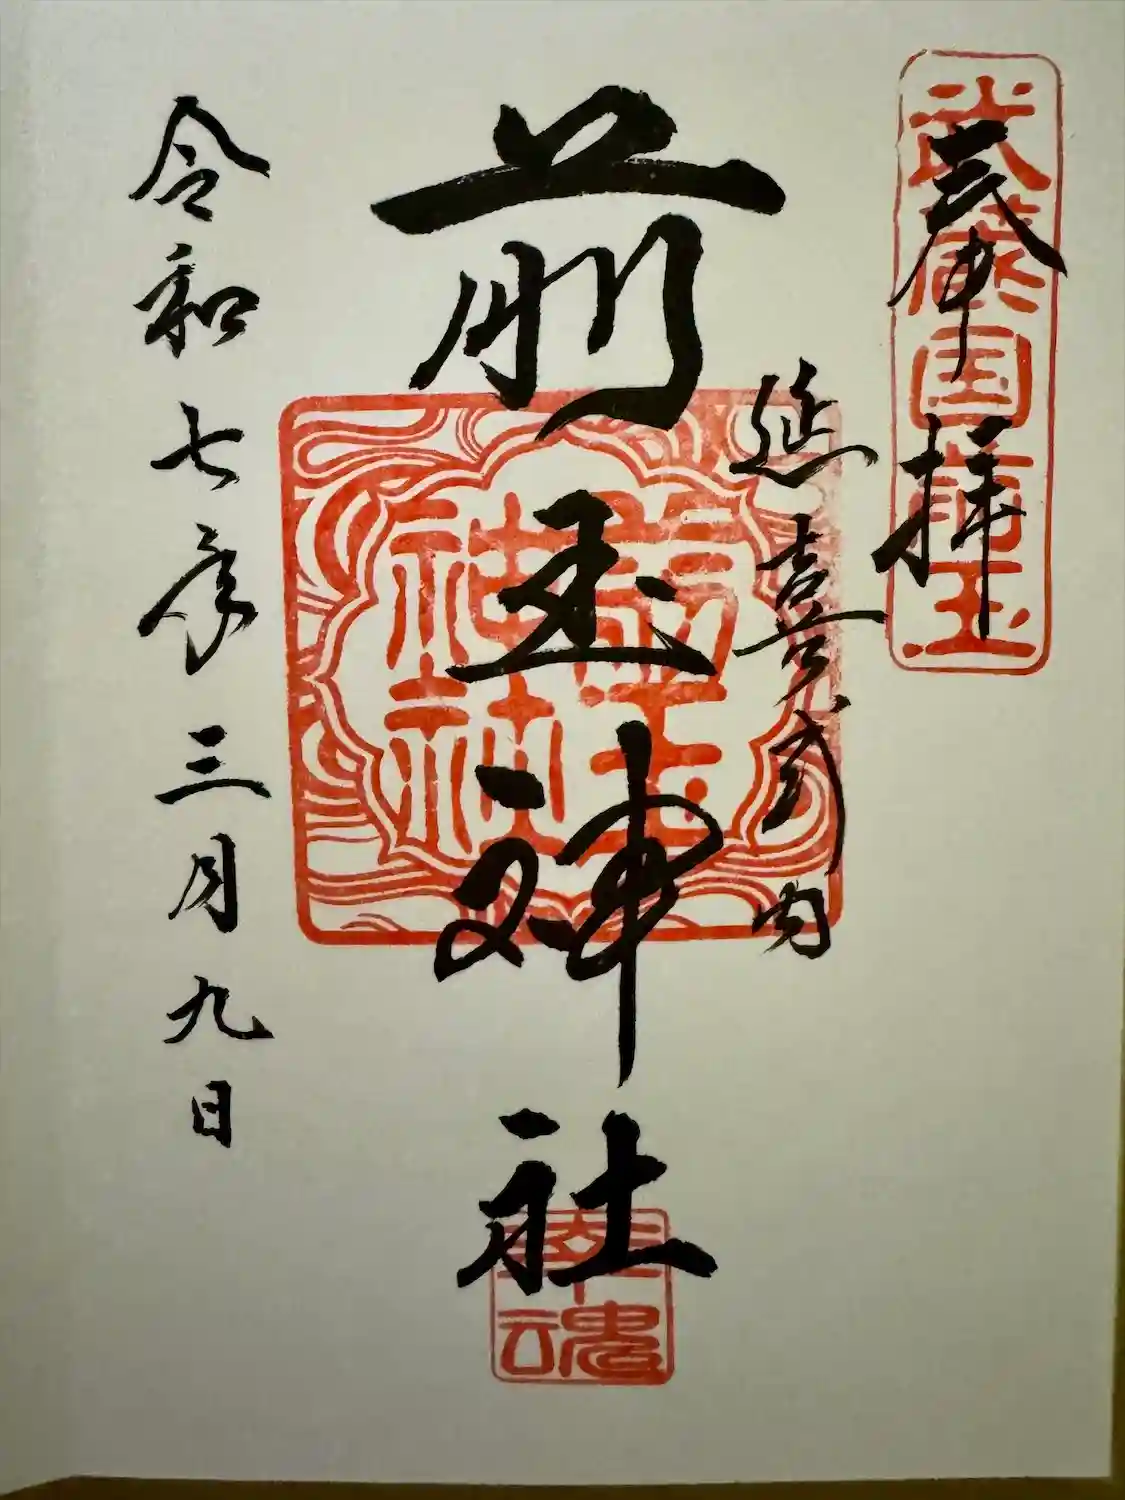 奉拝
武蔵国埼玉
延喜式内
前玉神社
前玉
神社
幸魂
令和七年三月九日